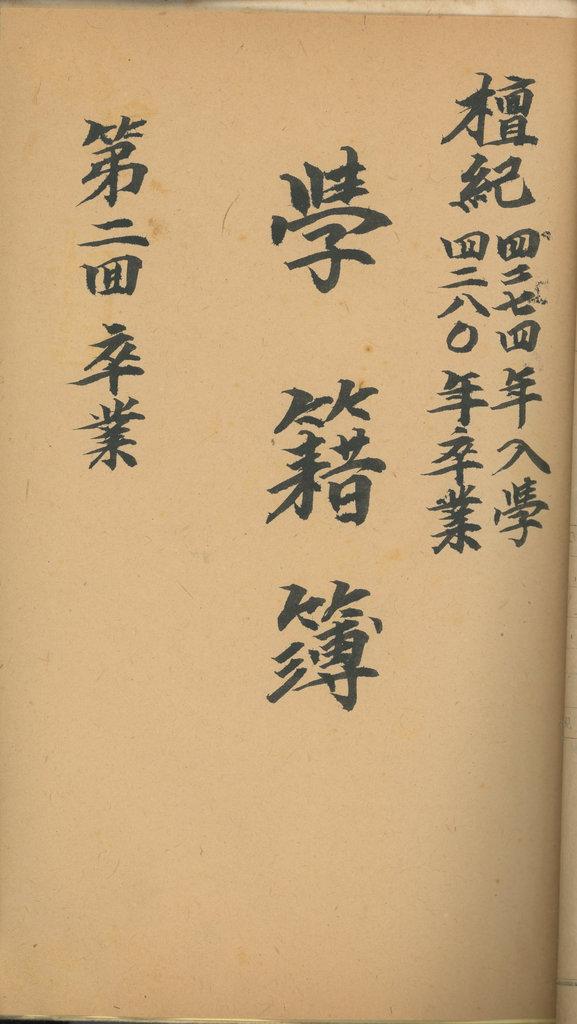 檀紀 四二七四年入學
四二八〇年卒業
學籍簿
第二回 卒業